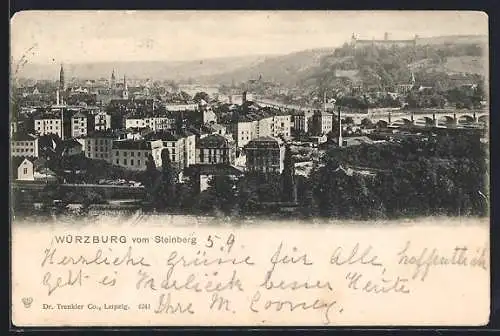 WÜRZBURG vom Steinberg 5 9
Herzliche Grüsse für Alle, hoffentlich
geht es besser Heute
Ihre M.
Dr. Trenkler Co., Leipzig. 4241